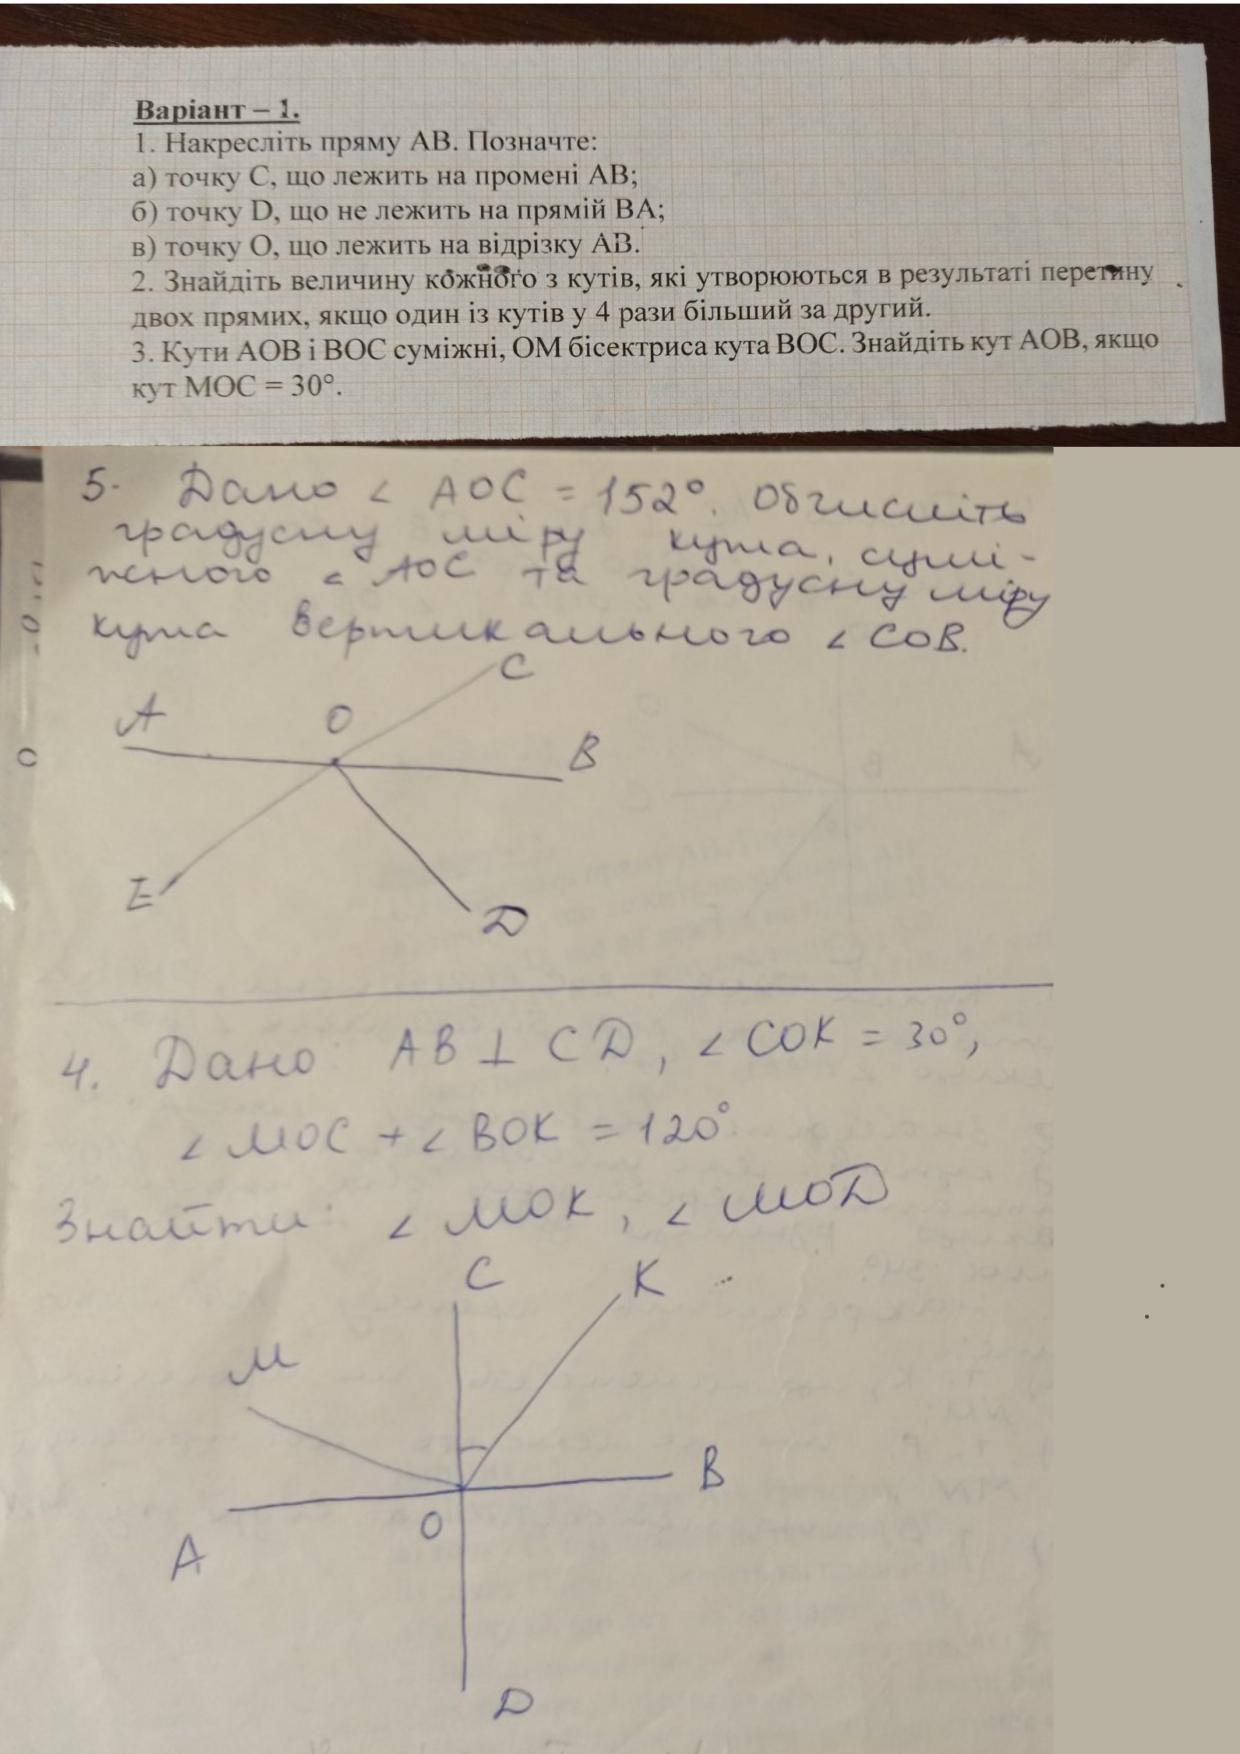 Варіант – 1.
1. Накресліть пряму АВ. Позначте:
а) точку С, що лежить на промені АВ;
б) точку D, що не лежить на прямій ВА;
в) точку О, що лежить на відрізку АВ.
2. Знайдіть величину кожного з кутів, які утворюються в результаті перетину
двох прямих, якщо один із кутів у 4 рази більший за другий.
3. Кути АОВ і ВОС суміжні, ОМ бісектриса кута ВОС. Знайдіть кут АОВ, якщо
кут МОС = 30°.
5. Дано ∠ АОС = 152°. Обчисліть
градусну міру кута, сумі-
жного ∠ АОС та градусну міру
кута вертикального ∠ СОВ.
C
A
O
B
E
D
4. Дано: АВ ⊥ CD, ∠ СОК = 30°,
∠ МОС + ∠ ВОК = 120°
Знайти: ∠ МОК, ∠ МОD
C
K
M
B
O
A
D